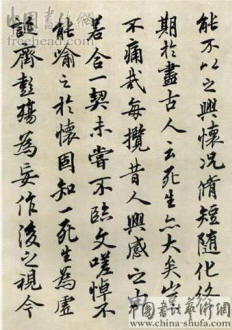 能不以之興懷況脩短隨化終
期於盡古人云死生亦大矣豈
不痛哉每攬昔人興感之由
若合一契未嘗不臨文嗟悼不
能喻之於懷固知一死生為虛
誕齊彭殤為妄作後之視今
freehead.com
www.china-shufa.com